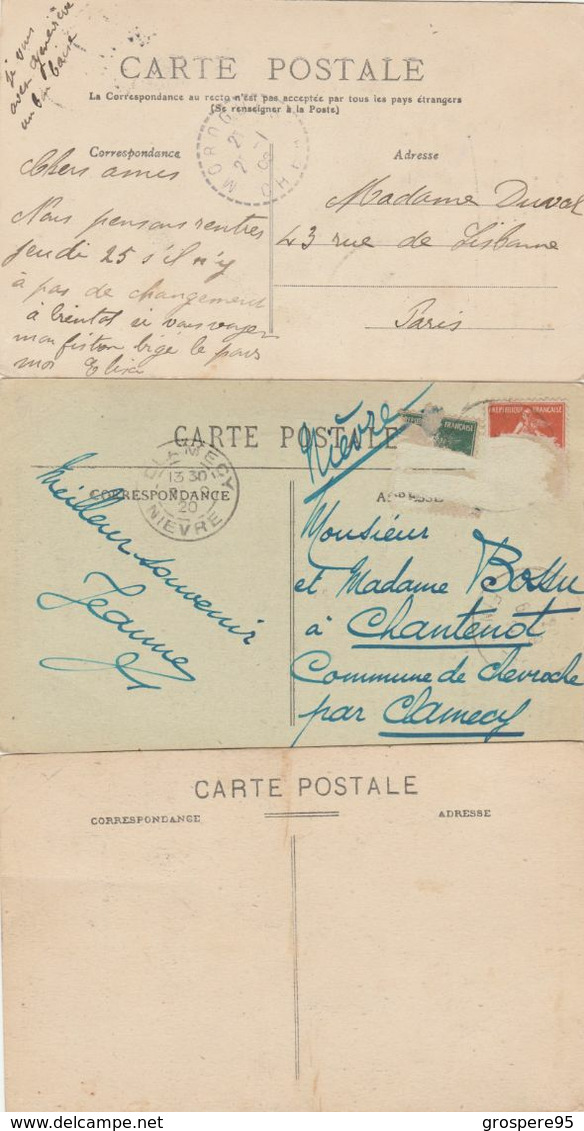 si vous
avec Geneviève
un bon baise
CARTE POSTALE
La Correspondance au recto n'est pas acceptée par tous les pays étrangers
(Se renseigner à la Poste)
MOROG CHER
Correspondance
Adresse
Chers amis
Nous pensons rentrer
jeudi 25 s'il n'y
à pas de changement
à bientot si vous voyez
mon fiston le pour
moi Elisa
Madame Duval
43 rue de Lisbonne
Paris
CARTE POSTALE
Nièvre
REPUBLIQUE FRANÇAISE
CLAMECY
13 30
20
NIEVRE
CORRESPONDANCE
ADRESSE
Meilleur souvenir
Jeanne
Monsieur
et Madame Bossu
à Chantenot
Commune de Chevroche
par Clamecy
CARTE POSTALE
CORRESPONDANCE
ADRESSE
grospere95